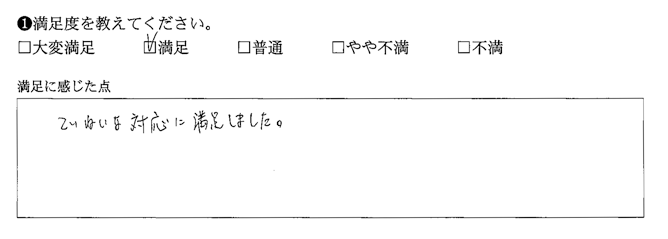 ❶満足度を教えてください。
□大変満足 ☑満足 □普通 □やや不満 □不満
満足に感じた点
ていねいな対応に満足しました。